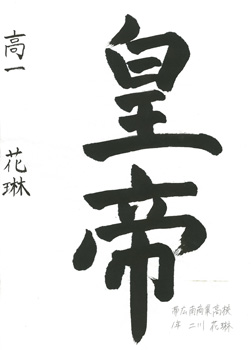 皇帝
高一 花琳
帯広南商業高校
1年 二川 花琳